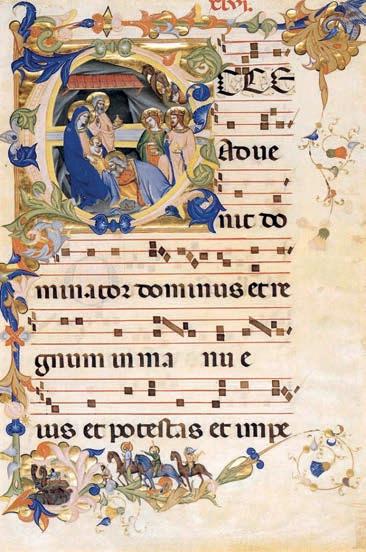 ECCE
Adue
nit do
minator dominus et re
gnum in ma nu e
ius et potestas et impe